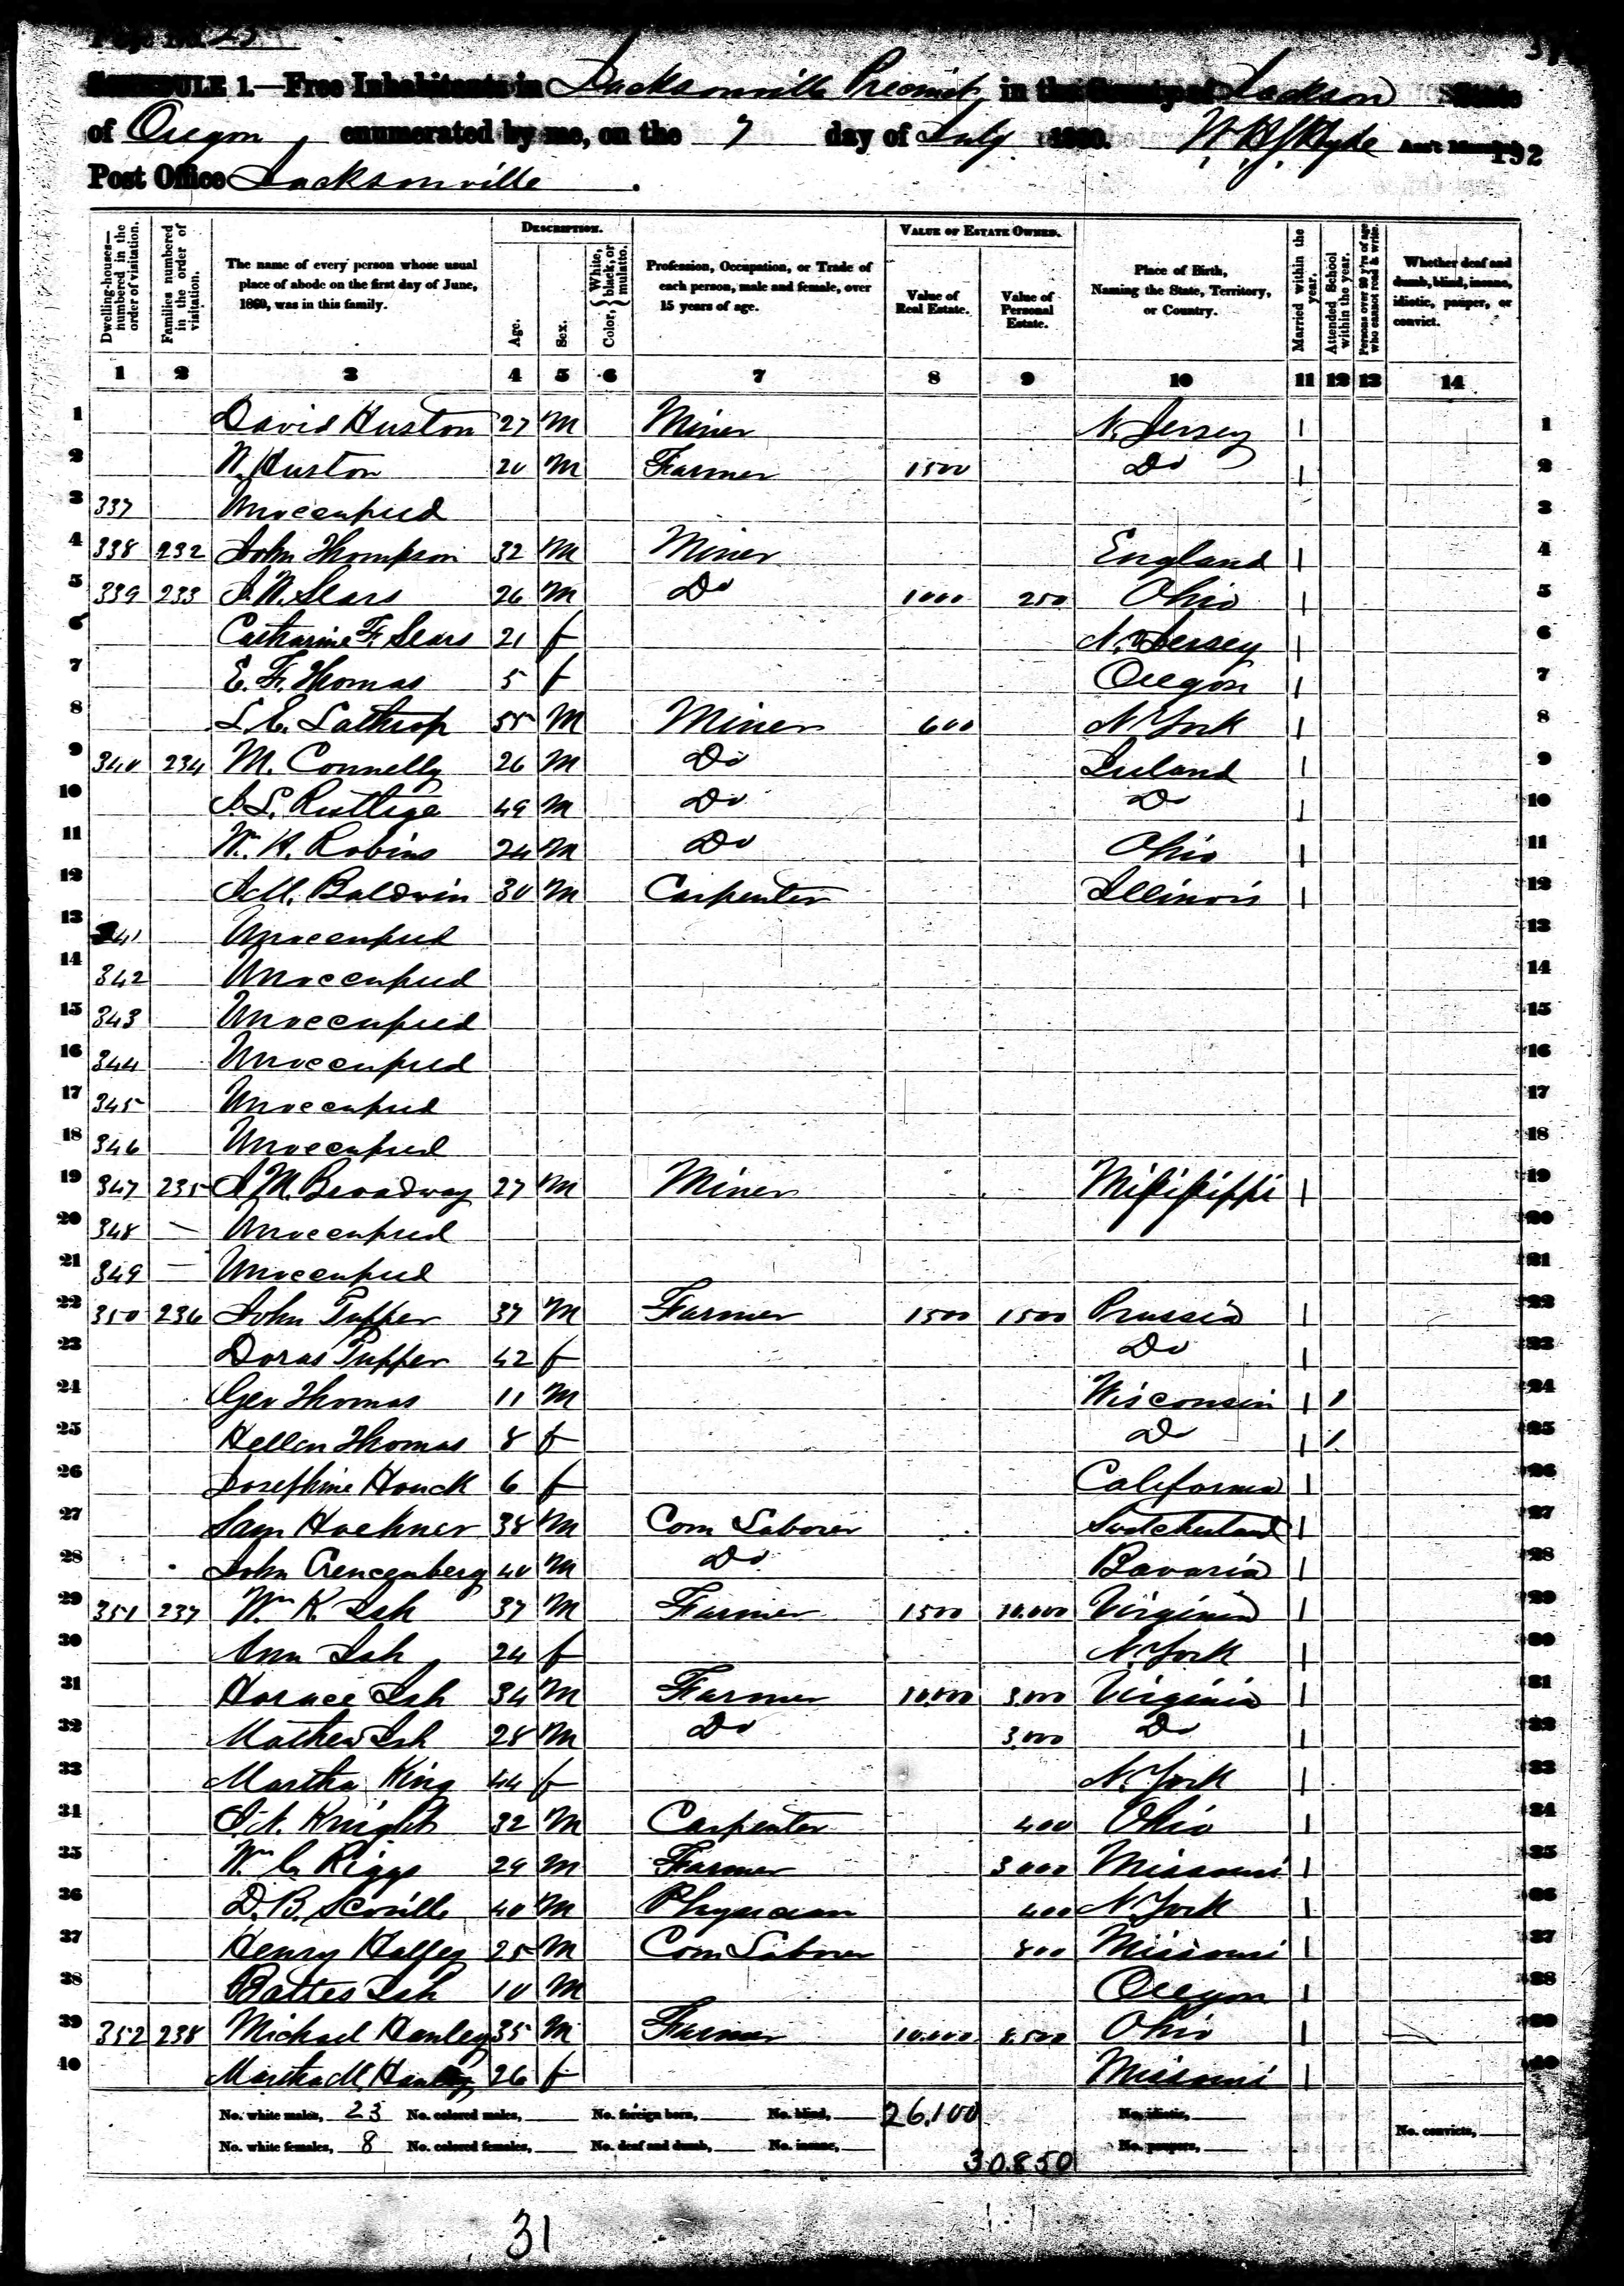 Page No. 25
SCHEDULE 1.—Free Inhabitants in Jacksonville Precinct, in the County of Jackson State
of Oregon enumerated by me, on the 7 day of July 1860. Ass't Marshal
192
Post Office Jacksonville.
Dwelling-houses—numbered in the order of visitation. Families numbered in the order of visitation. The name of every person whose usual place of abode on the first day of June, 1860, was in this family. Description. Age. Sex. Color, White, black, or mulatto. Profession, Occupation, or Trade of each person, male and female, over 15 years of age. Value of Estate Owned. Value of Real Estate. Value of Personal Estate. Place of Birth, Naming the State, Territory, or Country. Married within the year. Attended School within the year. Persons over 20 y'rs of age who cannot read & write. Whether deaf and dumb, blind, insane, idiotic, pauper, or convict.
1 2 3 4 5 6 7 8 9 10 11 12 13 14
1 David Huston 27 M Miner N. Jersey 1 1
2 N. Huston 20 M Farmer 1500 Do 1 2
3 337 Unoccupied 3
4 338 232 John Thompson 32 M Miner England 1 4
5 339 233 J. W. Sears 26 M Do 1000 250 Ohio 1 5
6 Catharine F. Sears 21 f N. Jersey 1 6
7 E. F. Thomas 5 f Oregon 1 7
8 L. E. Lathrop 55 M Miner 600 N York 1 8
9 340 234 M. Connelly 26 M Do Ireland 1 9
10 J. L. Rustlige 49 M Do Do 1 10
11 Wm. H. Robins 24 M Do Ohio 1 11
12 J. M. Baldwin 30 M Carpenter Illinois 1 12
13 341 Unoccupied 13
14 342 Unoccupied 14
15 343 Unoccupied 15
16 344 Unoccupied 16
17 345 Unoccupied 17
18 346 Unoccupied 18
19 347 235 J. M. Broadway 27 M Miner Missisippi 1 19
20 348 — Unoccupied 20
21 349 — Unoccupied 21
22 350 236 John Tupper 37 M Farmer 1500 1500 Prussia 1 22
23 Doras Tupper 42 f Do 1 23
24 Geo Thomas 11 M Wisconsin 1 1 24
25 Hellen Thomas 8 f Do 1 1 25
26 Josephine Houck 6 f California 1 26
27 Sam 38 M Com Laborer 1 27
28 John 40 M Do Bavaria 1 28
29 351 237 Wm K. Ish 37 M Farmer 1500 10.000 Virginia 1 29
30 Ann Ish 24 f N. York 1 30
31 Horace Ish 34 M Farmer 10,000 3,000 Virginia 1 31
32 Mathew Ish 28 M Do 3,000 Do 1 32
33 Martha King 44 f N. York 1 33
34 Knight 32 M Carpenter 400 Ohio 1 34
35 Wm C. Riggs 29 M Farmer 3000 Missouri 1 35
36 D. B. Scoville 40 M Physician 400 N York 1 36
37 Henry Halley 25 M Com Laborer 800 Missouri 1 37
38 Battes Ish 10 M Oregon 1 38
39 352 238 Michael Hanley 35 M Farmer 10.000 8,500 Ohio 1 39
40 Martha M. Hanley 26 f Missouri 1 40
No. white males, 23 No. colored males, No. foreign born, No. blind, 26,100 No. idiotic,
No. white females, 8 No. colored females, No. deaf and dumb, No. insane, 30.850 No. paupers, No. convicts,
31